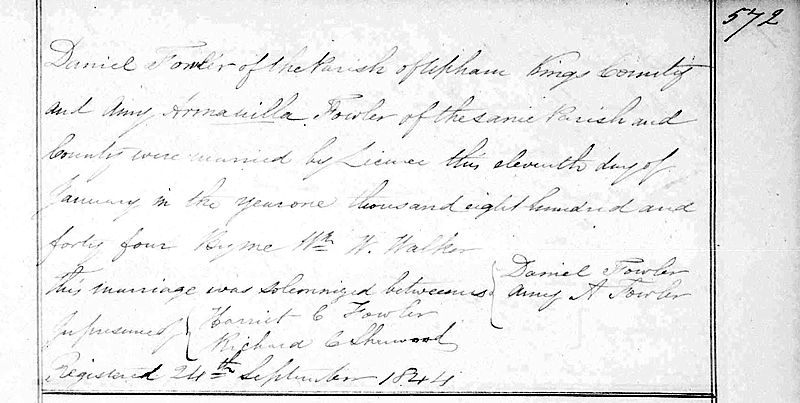 572
Daniel Fowler of the Parish of Upham Kings County
and Amy Armanilla Fowler of the same Parish and
County were married by Licence this eleventh day of
January in the year one thousand eight hundred and
forty four By me Wm W. Walker
this marriage was solemnized between us { Daniel Fowler
Amy A Fowler
In presence of { Harriet C Fowler
Richard C Sherwood
Registered 24th September 1844